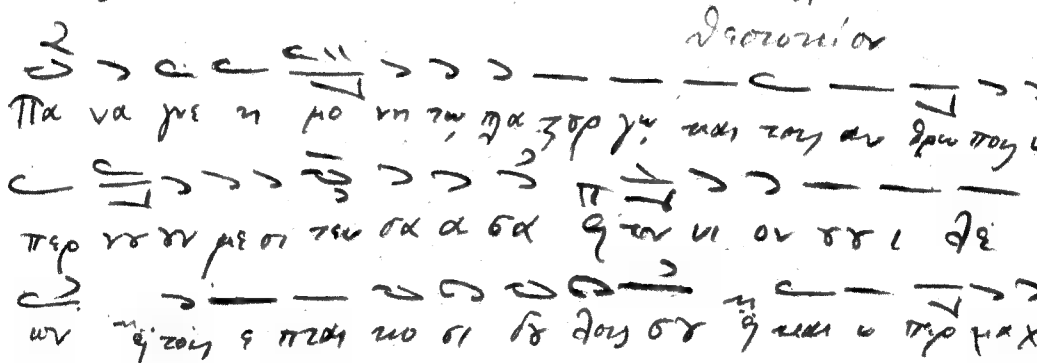 θεοτοκίον
Πα να γνε η μο νη τω πλα στουρ γω και τους αν θρω πους υ
περ νου ου με σι τευ σα α σα τον υι ον σου ι λε
ων τοις ε πται κο σι δου λοις σου και υ περ μα χ